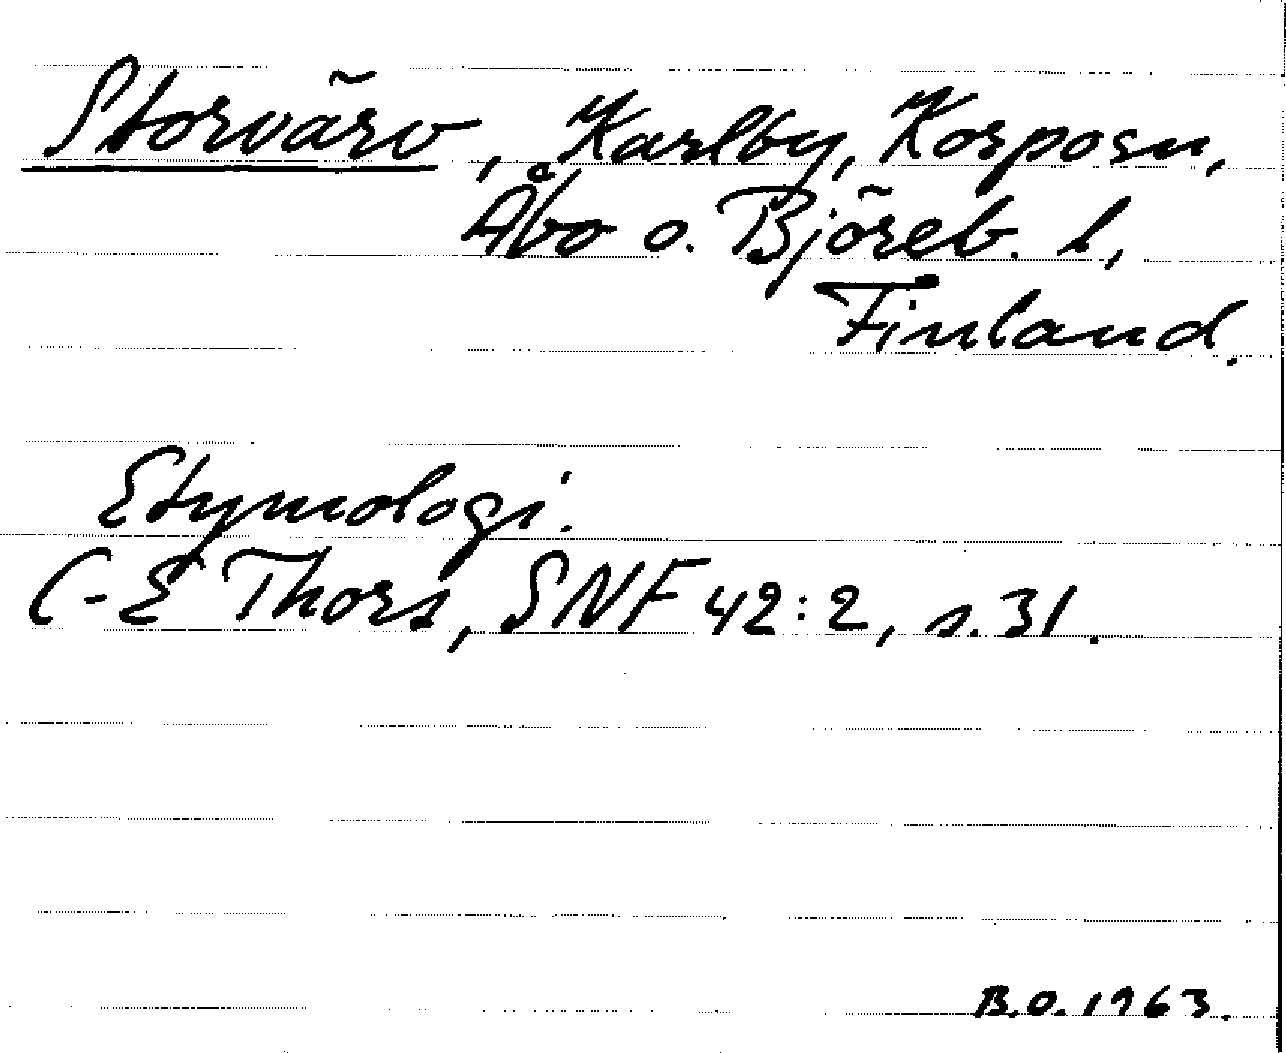 Storvärv, Karlby, Korposu,
Åbo o. Björeb. l,
Finland.
Etymologi.
C-E Thors, SNF 42:2, s. 31.
B.O. 1963.